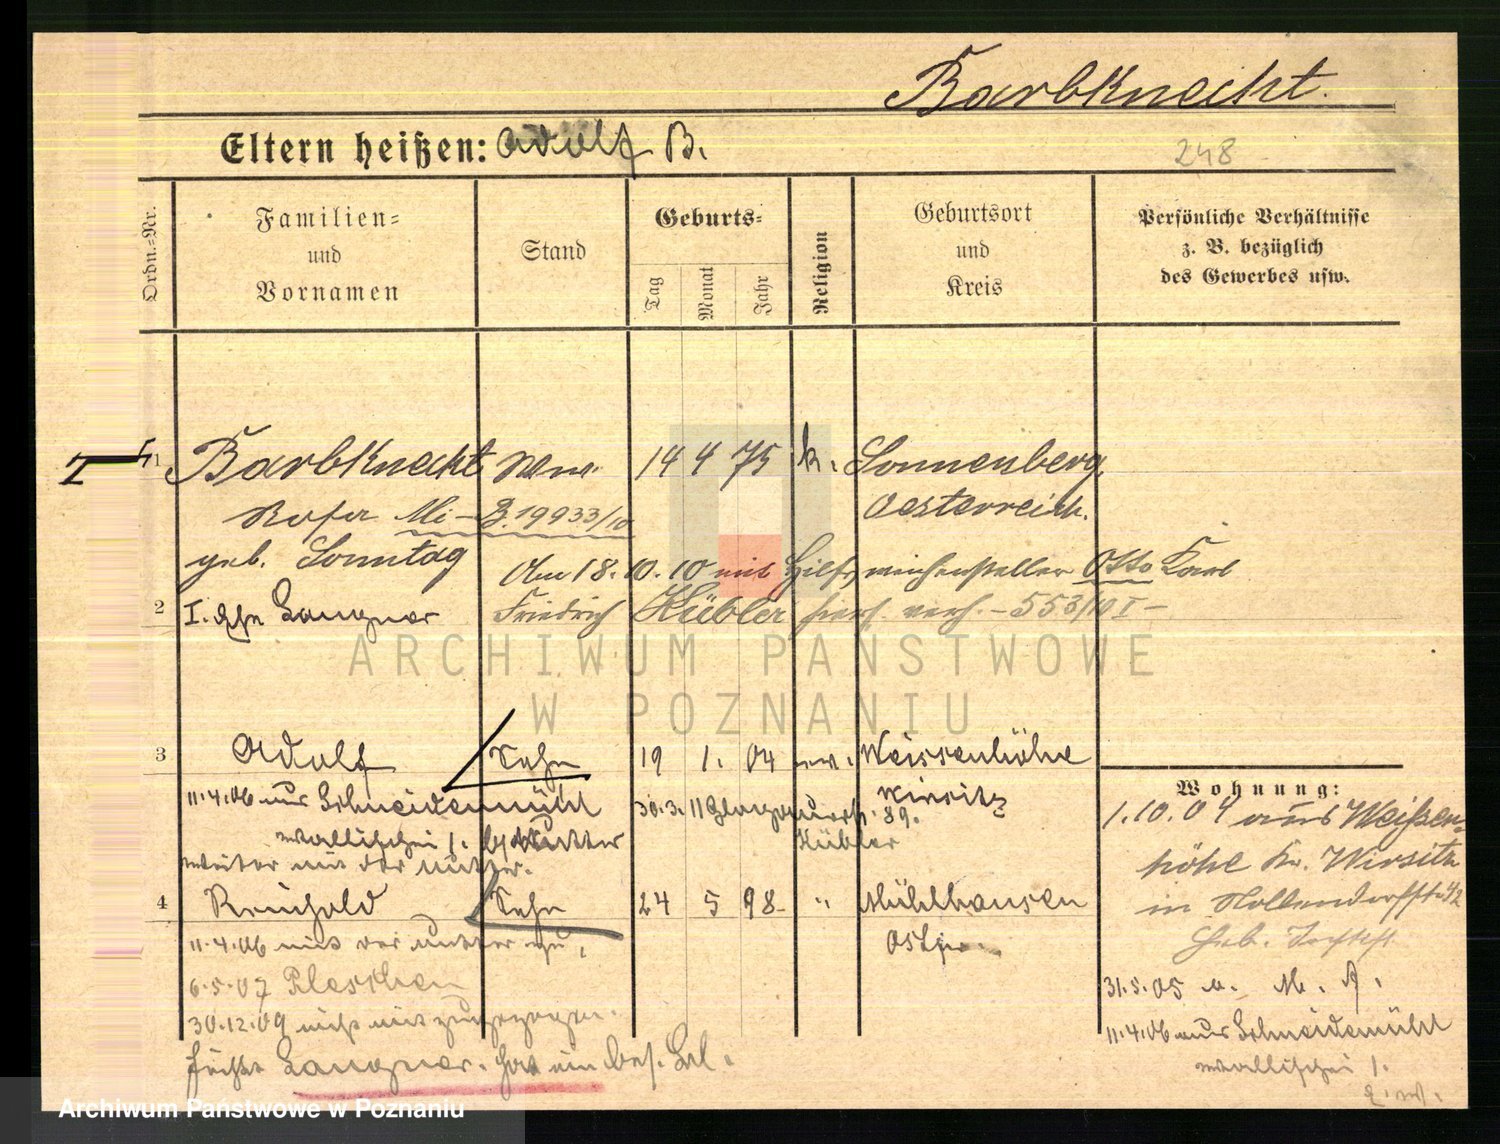 Barbknecht.
Eltern heißen: Adolf B.
248
Ordn.=Nr.
Familien=
und
Vornamen
Stand
Geburts=
Tag
Monat
Jahr
Religion
Geburtsort
und
Kreis
Persönliche Verhältnisse
z. B. bezüglich
des Gewerbes usw.
1 Barbknecht Wwe. 14 4 75 k. Sonnenberg
Rosa Mi - Z. 19933/10 Oesterreich.
geb. Sonntag
Am 18. 10. 10 mit Hilfsweichensteller Otto Karl
2 I. Ehe Langner Friedrich Kübler hier verh. - 553/10 I -
3 Adolf Sohn 19 1. 04 ev. Weissenhöhe
Wirsitz
11.4.06 aus Schneidemühl 30.3.11 89.
Wallischei 1. b/ Mutter Kübler
weiter mit der Mutter.
4 Reinhold Sohn 24 5 98 " Mühlhausen
Ostpr.
11.4.06 mit der Mutter
6.5.07 Pleschen
30.12.09 nicht mit zugezogen.
führt Langner. Hat ein bes. Bl.
Wohnung:
1.10.04 aus Weißen=
höhe Kr. Wirsitz
in
31.5.05 a. M. A.
11.4.06 aus Schneidemühl
Wallischei 1.
ARCHIWUM PAŃSTWOWE
W POZNANIU
Archiwum Państwowe w Poznaniu